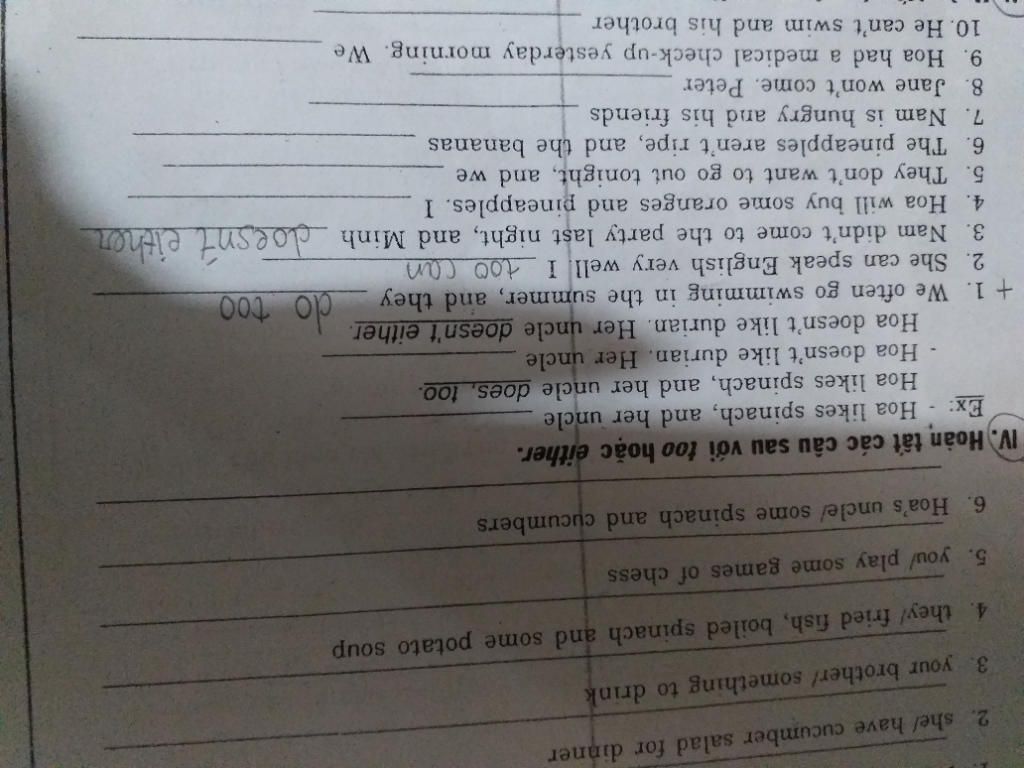 2. she/ have/ cucumber salad for dinner
3. your brother/ something to drink
4. they/ fried fish, boiled spinach and some potato soup
5. you/ play some games of chess
6. Hoa's uncle/ some spinach and cucumbers
IV. Hoàn tất các câu sau với too hoặc either.
Ex: - Hoa likes spinach, and her uncle
Hoa likes spinach, and her uncle does, too.
- Hoa doesn't like durian. Her uncle
Hoa doesn't like durian. Her uncle doesn't either.
+ 1. We often go swimming in the summer, and they do too
2. She can speak English very well. I too can
3. Nam didn't come to the party last night, and Minh doesn't either
4. Hoa will buy some oranges and pineapples. I
5. They don't want to go out tonight, and we
6. The pineapples aren't ripe, and the bananas
7. Nam is hungry and his friends
8. Jane won't come. Peter
9. Hoa had a medical check-up yesterday morning. We
10. He can't swim and his brother